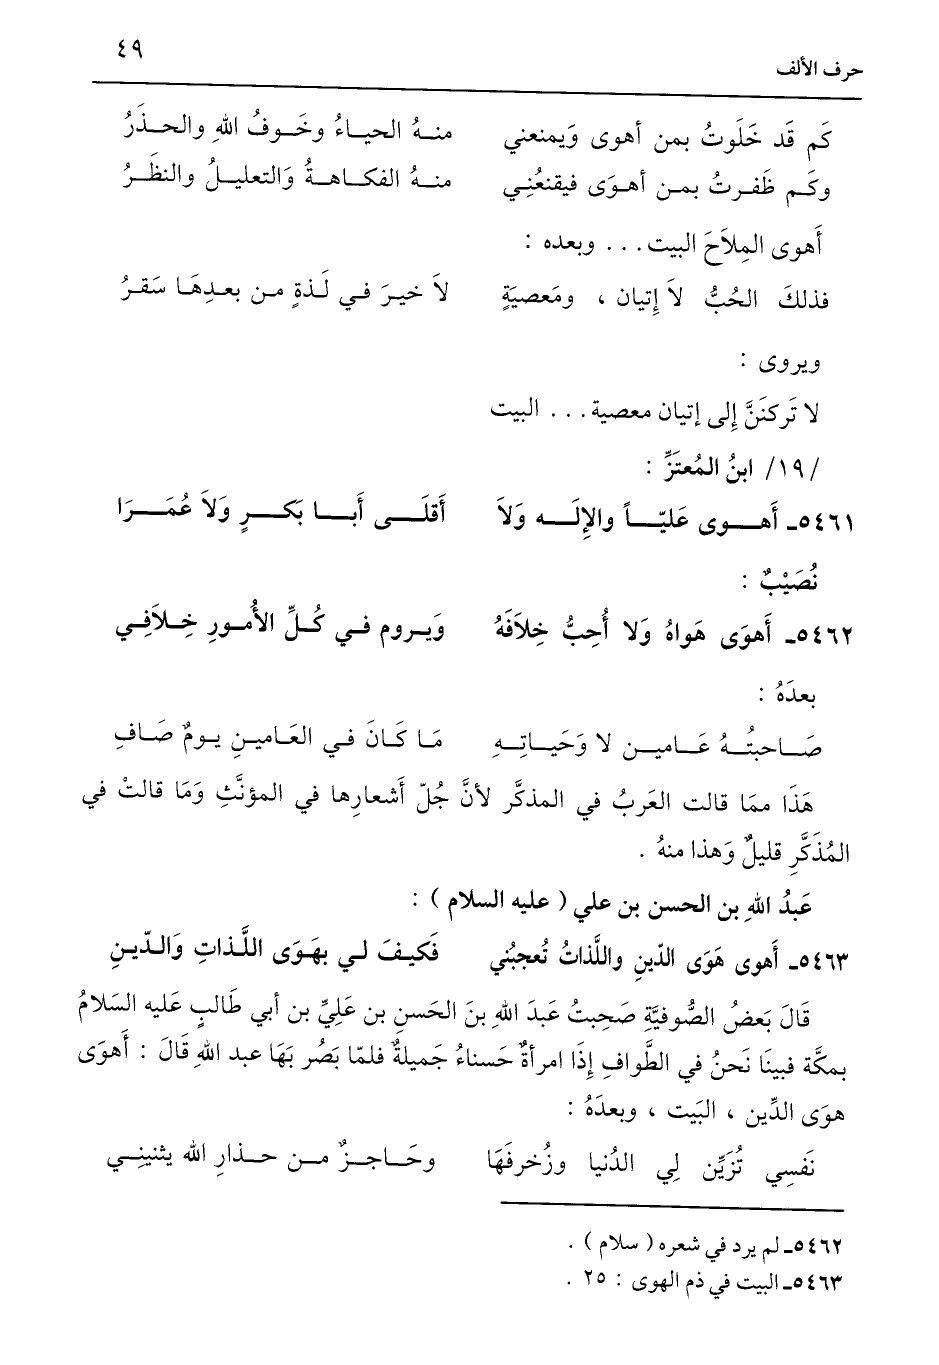 ٤٩
حرف الألف
كَم قَد خَلَوتُ بمن أهوى وَيمنعني منـهُ الحيـاءُ وخَـوفُ اللهِ والحـذَرُ
وكَـم ظَفـرتُ بمـن أهـوَى فيقنعُنِـي منـهُ الفكـاهـةُ وَالتعليـلُ والنظَـرُ
أَهوى المِلاَحَ البيت . . . وبعده :
فذلكَ الحُبُّ لاَ إتيان ، ومَعصيَةٍ لاَ خيـرَ فـي لَـذةٍ مـن بعـدِهَـا سَقـرُ
ويروى :
لا تَركنَنَّ إلى إتيان معصية . . . البيت
/١٩/ ابنُ المُعتَزِّ :
٥٤٦١ـ أهـوى عَليّـاً والإلَـه وَلاَ أقلَـى أَبـا بَكـرٍ وَلاَ عُمَـرَا
نُصَيْبٌ :
٥٤٦٢ـ أَهوَى هَواهُ وَلا أُحِبُّ خِلاَفَهُ وَيـروم فـي كُـلِّ الأُمـورِ خِـلاَفِـي
بعدَهُ :
صَـاحبتُـهُ عَـاميـن لا وَحَيـاتِـهِ مَـا كَـانَ فـي العَـاميـنِ يـومٌ صَـافِ
هَذَا ممَا قالت العَربُ في المذكَّر لأنَّ جُلّ أَشعارِها في المؤنَّثِ وَمَا قالتْ في
المُذَكَّرِ قليلٌ وَهذا منهُ .
عَبدُ اللهِ بن الحسن بن علي ( عليه السلام ) :
٥٤٦٣ـ أَهوى هَوَى الدّينِ واللَّذاتُ تُعجبُني فَكيـفَ لـي بهَـوَى اللَّـذاتِ وَالـدّيـنِ
قَالَ بَعضُ الصُّوفيَّةِ صَحِبتُ عَبدَ اللهِ بنَ الحَسنِ بن عَليِّ بن أبي طَالبٍ عَليه السَلامُ
بمكَّة فبينَا نَحنُ في الطَّوافِ إذَا امرأةٌ حَسناءُ جَميلةٌ فلمّا بَصُر بَهَا عبد اللهِ قَالَ : أَهوَى
هوَى الدِّين ، البَيت ، وبعدَهُ :
نَفسِي تُزَيّن لِي الدُنيا وزُخرفَهَا وحَـاجـزٌ مـن حـذارِ الله يثنينِـي
٥٤٦٢ـ لم يرد في شعره ( سلام ) .
٥٤٦٣ـ البيت في ذم الهوى : ٢٥ .